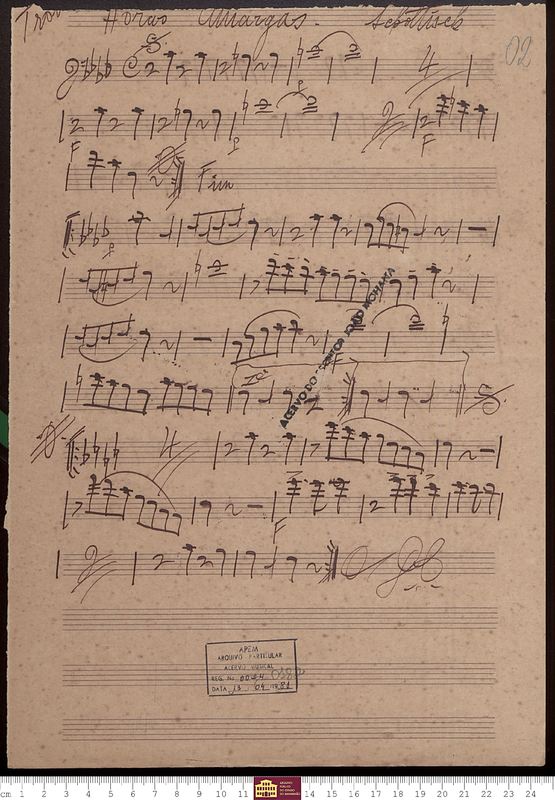 Horas Amargas. Schottisch
02
4
F
Fim
ACERVO DO SENHOR JOÃO MOHANA
4
F
APEM
ARQUIVO PARTICULAR
ACERVO MUSICAL
REG. No
DATA 13 04 1981
cm 1 2 3 4 5 6 7 8 9 10 11 14 15 16 17 18 19 20 21 22 23 24